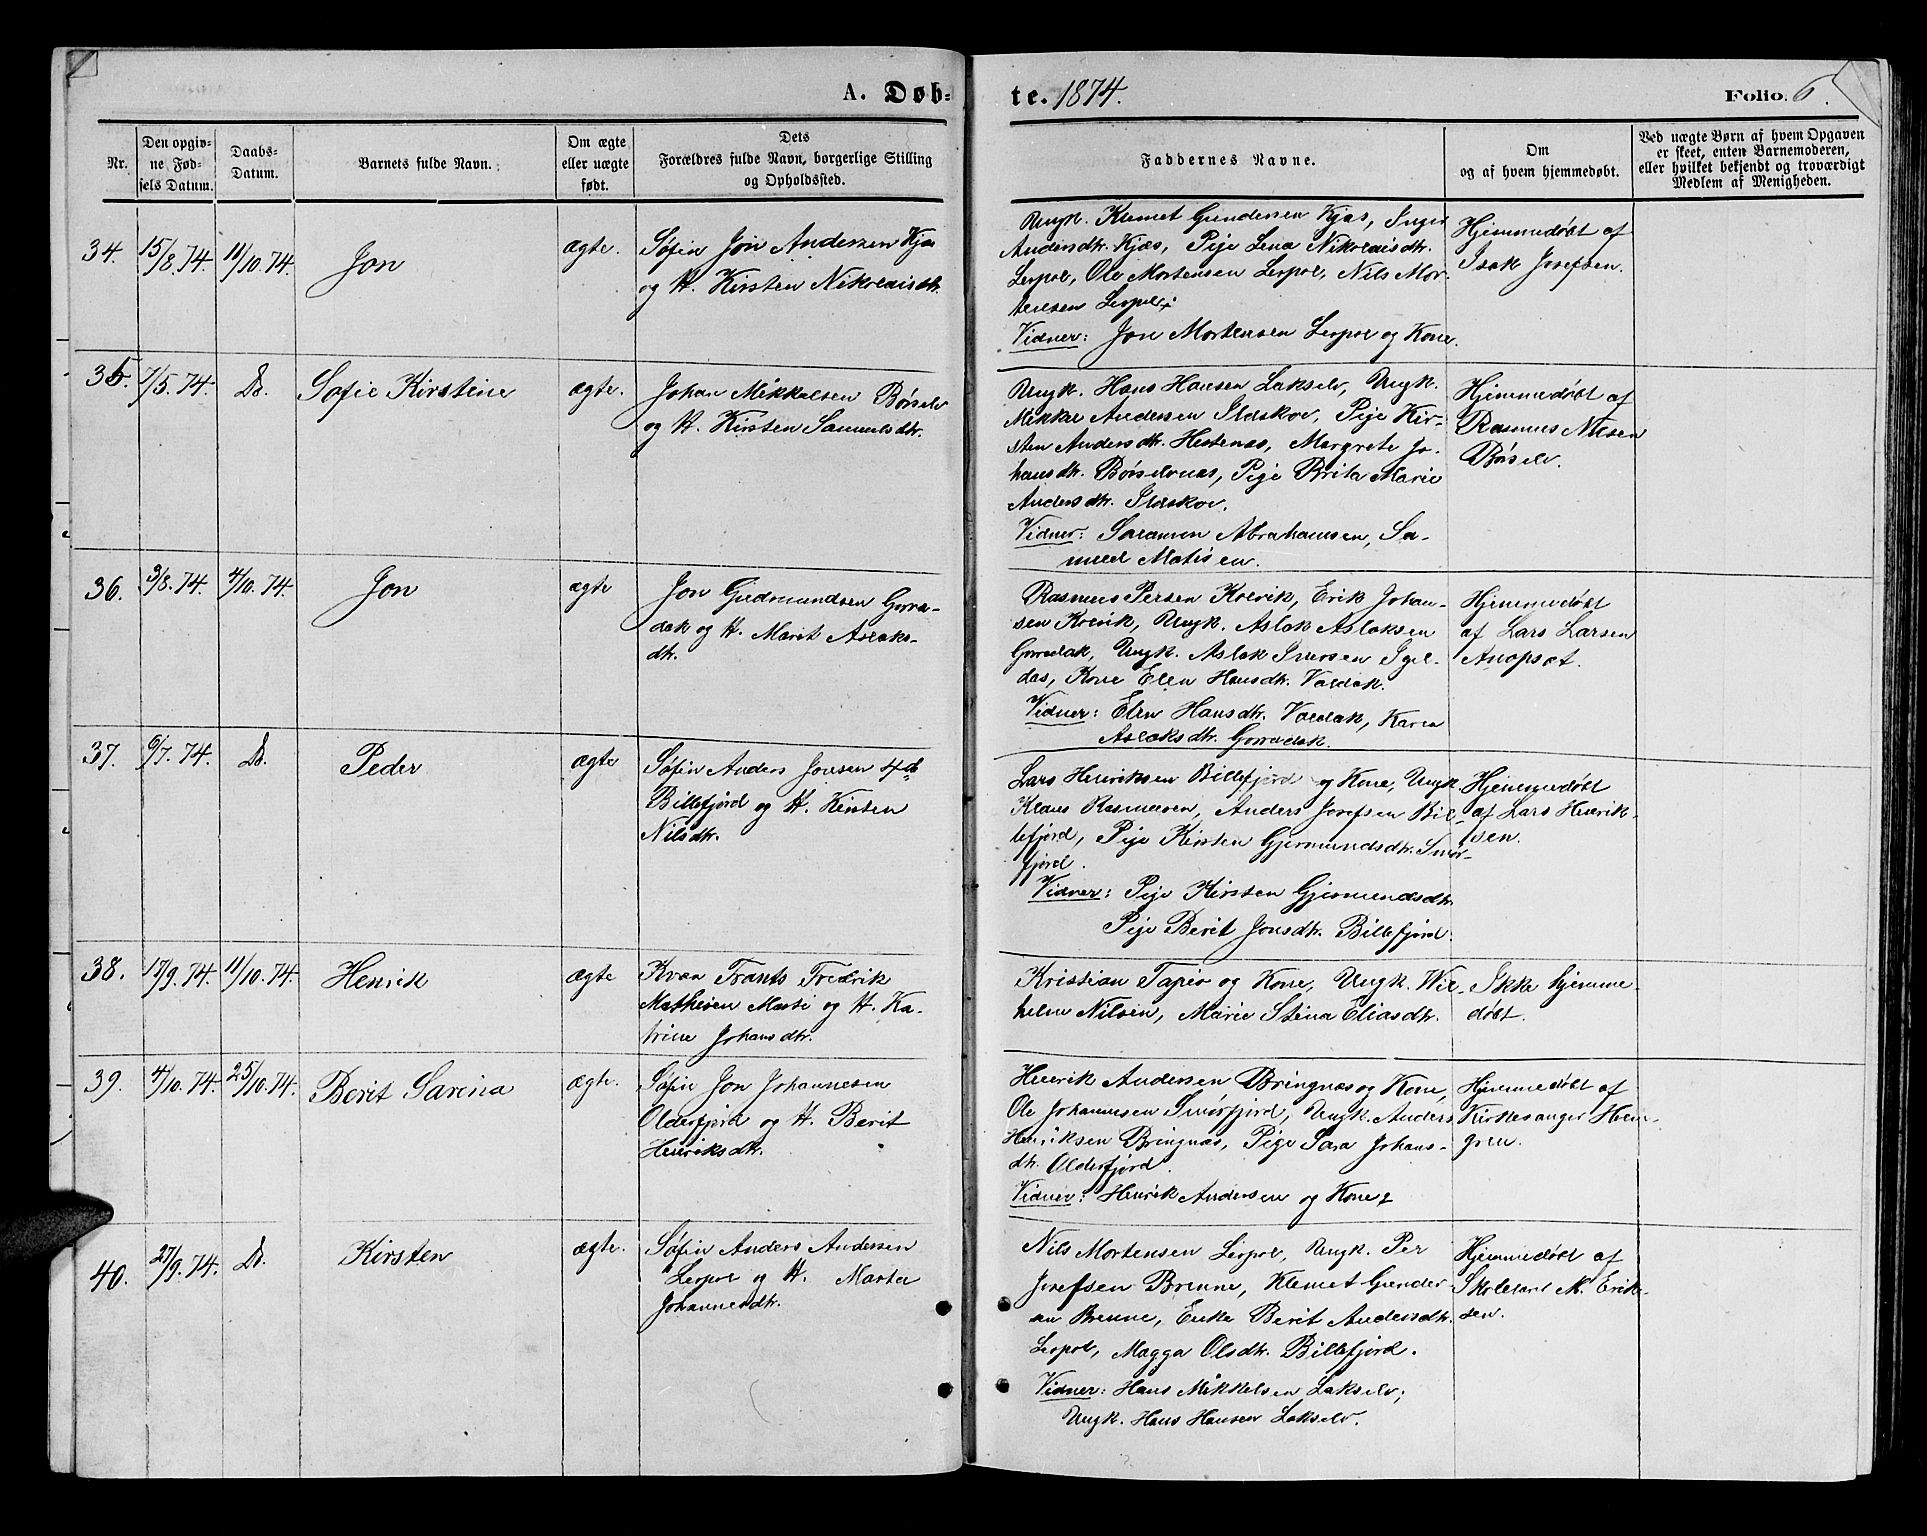 A. Døb-
te. 1874.
Folio. 6.
Nr.
Den opgiv-
ne Fød-
sels Datum.
Daabs-
Datum.
Barnets fulde Navn.
Om ægte
eller uægte
født.
Dets
Forældres fulde Navn, borgerlige Stilling
og Opholdssted.
Faddernes Navne.
Om
og af hvem hjemmedøbt.
Ved uægte Børn af hvem Opgaven
er skeet, enten Barnemoderen,
eller hvilket bekjendt og troværdigt
Medlem af Menigheden.
34. 15/8.74. 11/10.74. Jon ægte.
Søfin Jon Andersen Kjæs
og H. Kirsten Nikolaisdtr.
Ungk. Klemet Gundersen Kjæs, Inger
Andersdtr. Kjæs, Pige Lena Nikolaisdtr.
Leypol, Ole Mortensen Leypol, Nils Mor-
tensen Leypol.
Vidner: Jon Mortensen Leypol og Kone.
Hjemmedøbt af
Isak Josefsen.
35. 7/5.74. Do. Sofie Kirstine ægte.
Johan Mikkelsen Børselv
og H. Kirsten Samuelsdtr.
Ungk. Hans Hansen Lakselv, Ungk.
Mikkel Andersen Ildskov, Pige Kir-
sten Andersdtr. Hestenæs, Margrete Jo-
hansdtr. Børselvnæs, Pige Brita Marie
Andersdtr. Ildskov.
Vidner: Salamon Abrahamsen, Sa-
muel Matisen.
Hjemmedøbt af
Rasmus Nilsen
Børselv.
36. 3/8.74. 4/10.74. Jon ægte
Jon Gudmundsen Gorra-
dak og H. Marit Aslaks-
dtr.
Rasmus Persen Kolvik, Erik Johan-
sen Kolvik, Ungk. Aslak Aslaksen
Gorradak, Ungk. Aslak Iversen Igel-
das, Kone Elen Hansdtr. Valdak.
Vidner: Elen Hansdtr. Valdak, Karen
Aslaksdtr. Gorradak.
Hjemmedøbt
af Lars Larsen
Anopset.
37. 6/7.74. Do. Peder ægte
Søfin Anders Jonsen 4de
Billefjord og H. Kirsten
Nilsdtr.
Lars Henriksen Billefjord og Kone, Ungk.
Klaus Rasmussen, Anders Josefsen Bil-
lefjord, Pige Kirsten Gjermundsdtr. Smør-
fjord.
Vidner: Pige Kirsten Gjermundsdtr.
Pige Berit Jonsdtr. Billefjord.
Hjemmedøbt
af Lars Henrik-
sen.
38. 17/9.74. 11/10.74. Henrik ægte
Kvæn Frants Fredrik
Mathisen Marti og H. Ka-
trine Johansdtr.
Kristian Tapio og Kone, Ungk. Wil-
helm Nilsen, Marie Stina Eliasdtr.
Ikke hjemme-
døbt.
39. 4/10.74. 25/10.74. Berit Sarina ægte.
Søfin Jon Johannesen
Olderfjord og H. Berit
Henriksdtr.
Henrik Andersen Bringnæs og Kone,
Ole Johannesen Smørfjord, Ungk. Anders
Henriksen Bringnæs, Pige Sara Johans-
dtr. Olderfjord.
Vidner: Henrik Andersen og Kone.
Hjemmedøbt af
Kirkesanger Hem-
gren.
40. 27/9.74. Do. Kirsten ægte.
Søfin Anders Andersen
Leypol og H. Marta
Johannesdtr.
Nils Mortensen Leypol, Ungk. Per
Josefsen Brenne, Klemet Gunder-
sen Brenne, Enke Berit Andersdtr.
Leypol, Magga Olsdtr. Billefjord.
Vidner: Hans Mikkelsen Lakselv,
Ungk. Hans Hansen Lakselv.
Hjemmedøbt af
Skolelærer M. Erik-
sen.